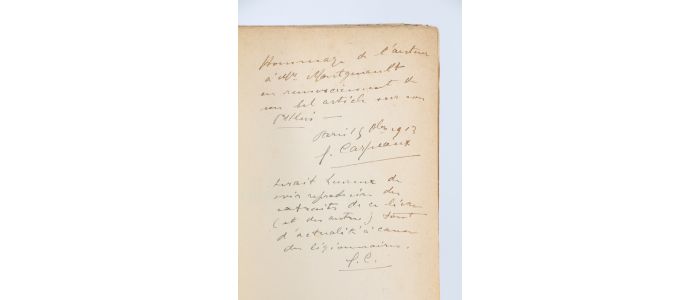 Hommage de l'auteur
à Mr Montgenault
en remerciement de
son bel article sur son
Paris 15 Xbre 1913
J. Carpeaux
Serait heureux de
voir reproduire des
extraits de ce livre
(et des autres) tout
d'actualité à cause
des légionnaires.
J. C.